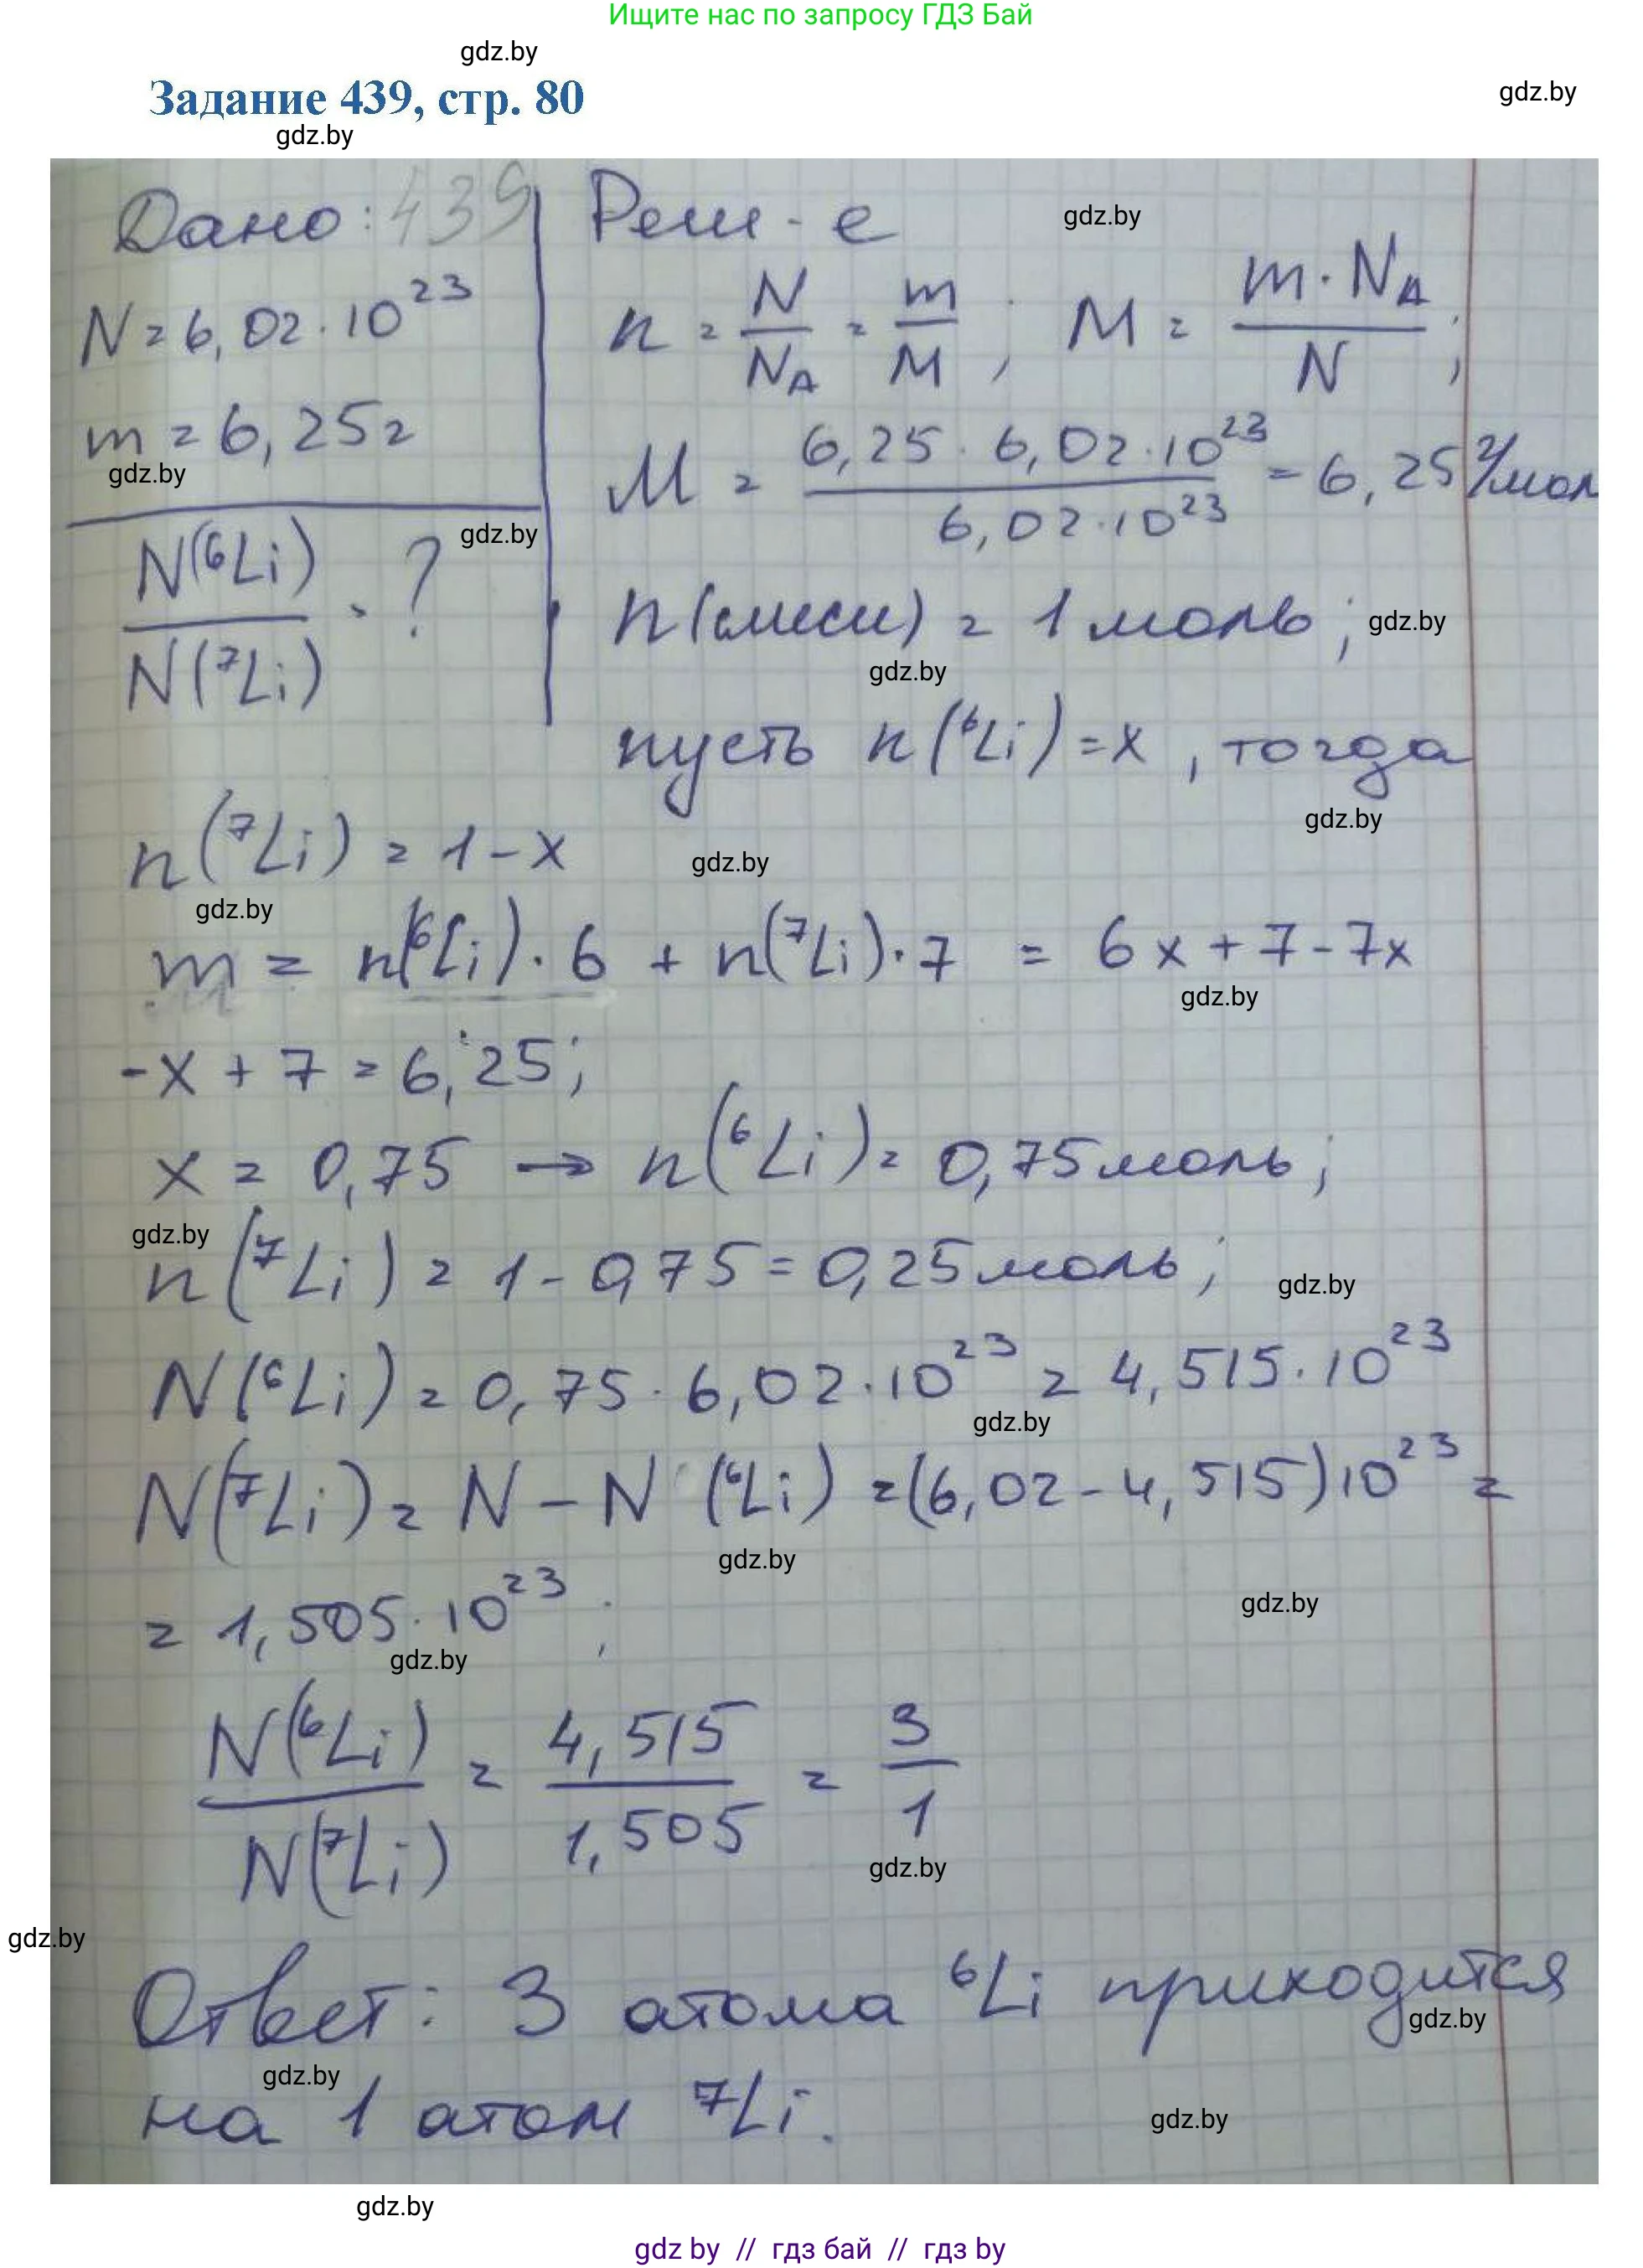 Ищите нас по запросу ГДЗ Бай
gdz.by
Задание 439, стр. 80
gdz.by
gdz.by
Дано: 439
Реш-е
gdz.by
N = 6,02·10²³
n = N/N_A = m/M ; M = m·N_A/N ;
m = 6,25г
gdz.by
M = 6,25·6,02·10²³/6,02·10²³ = 6,25 г/мол
N(⁶Li)/N(⁷Li) - ?
gdz.by
n(смеси) = 1 моль ;
gdz.by
gdz.by
пусть n(⁶Li) = x , тогда
gdz.by
n(⁷Li) = 1 - x
gdz.by
gdz.by
m = n(⁶Li)·6 + n(⁷Li)·7 = 6x + 7 - 7x
gdz.by
-x + 7 = 6,25;
x = 0,75 → n(⁶Li) = 0,75 моль;
gdz.by
n(⁷Li) = 1 - 0,75 = 0,25 моль;
gdz.by
N(⁶Li) = 0,75·6,02·10²³ = 4,515·10²³
gdz.by
N(⁷Li) = N - N(⁶Li) = (6,02 - 4,515)10²³ =
gdz.by
= 1,505·10²³ ;
gdz.by
gdz.by
N(⁶Li)/N(⁷Li) = 4,515/1,505 = 3/1
gdz.by
gdz.by
Ответ: 3 атома ⁶Li приходится
gdz.by
gdz.by
на 1 атом ⁷Li.
gdz.by
gdz.by
gdz by // гдз бай // гдз by